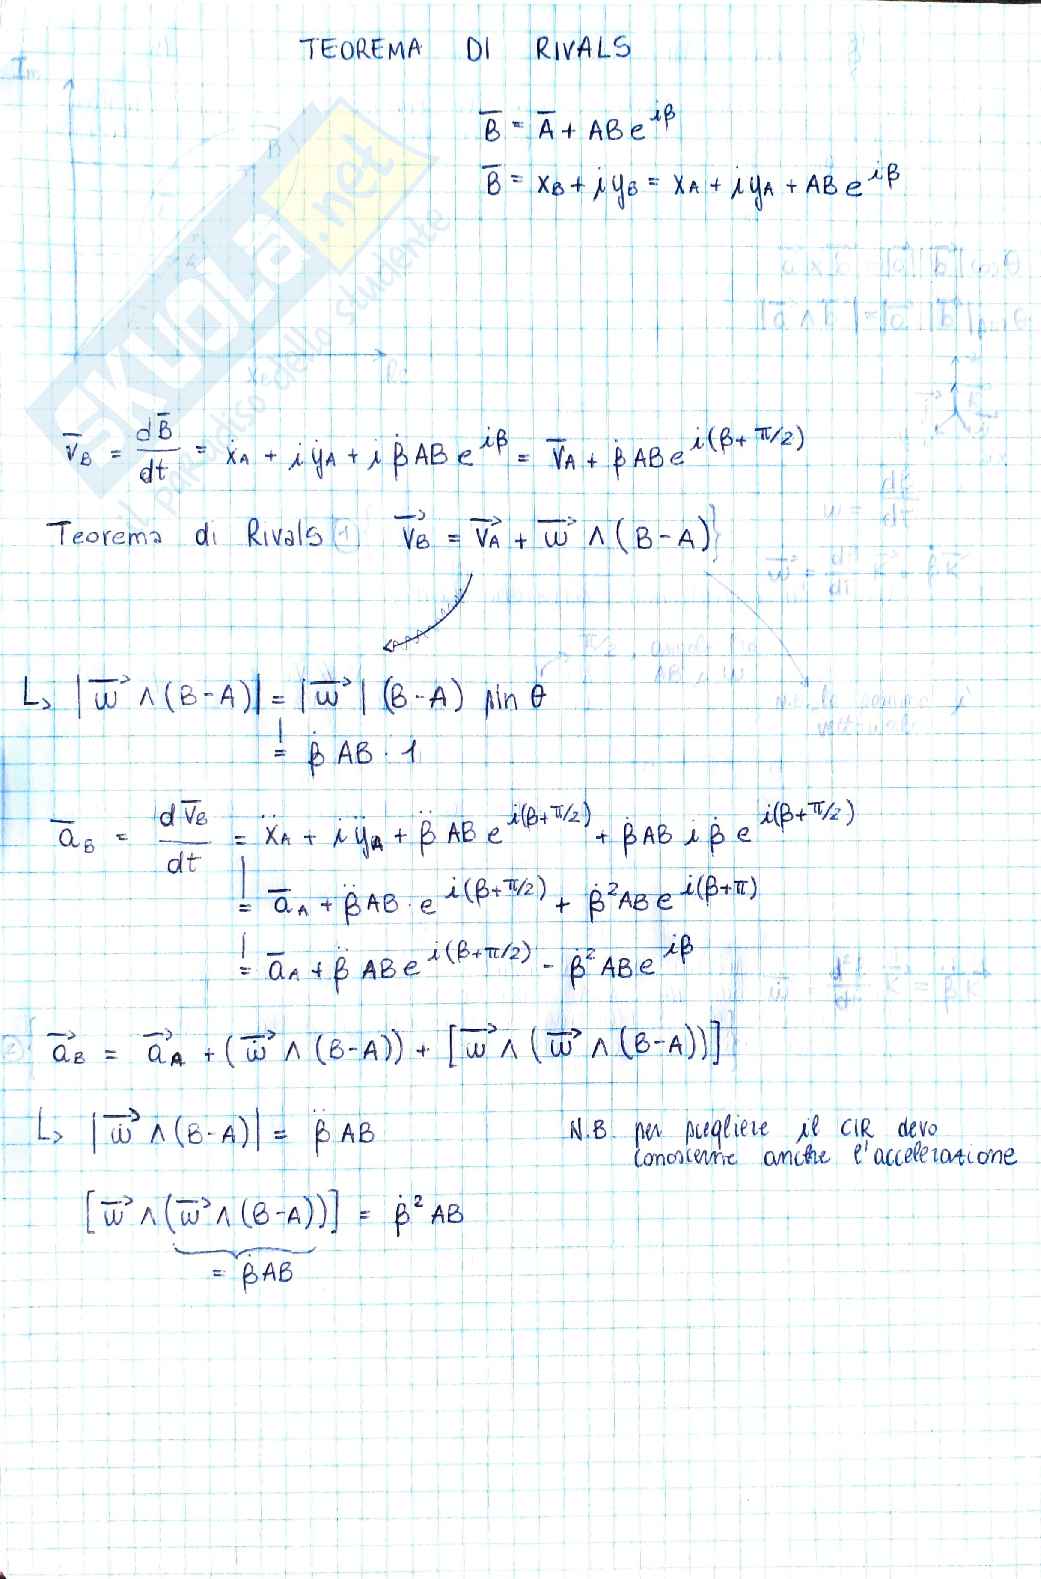 TEOREMA DI RIVALS
Im
B̅ = A̅ + AB e^{iβ}
B̅ = x_B + i y_B = x_A + i y_A + AB e^{iβ}
SKUOLA.net
il paradiso dello studente
v̅_B = dB̅/dt = ẋ_A + i ẏ_A + i β̇ AB e^{iβ} = v̅_A + β̇ AB e^{i(β+π/2)}
Teorema di Rivals 1 v⃗_B = v⃗_A + w⃗ ∧ (B-A)
π/2
L> |w⃗ ∧ (B-A)| = |w⃗| (B-A) sin θ
= β̇ AB · 1
a̅_B = dv̅_B/dt = ẍ_A + i ÿ_A + β̈ AB e^{i(β+π/2)} + β̇ AB i β̇ e^{i(β+π/2)}
= a̅_A + β̈ AB · e^{i(β+π/2)} + β̇² AB e^{i(β+π)}
= a̅_A + β̈ AB e^{i(β+π/2)} - β̇² AB e^{iβ}
2 a⃗_B = a⃗_A + (ẇ⃗ ∧ (B-A)) + [w⃗ ∧ (w⃗ ∧ (B-A))]
L> |ẇ⃗ ∧ (B-A)| = β̈ AB
N.B. per scegliere il CIR devo
conoscerne anche l'accelerazione
[w⃗ ∧ (w⃗ ∧ (B-A))] = β̇² AB
= β̇ AB